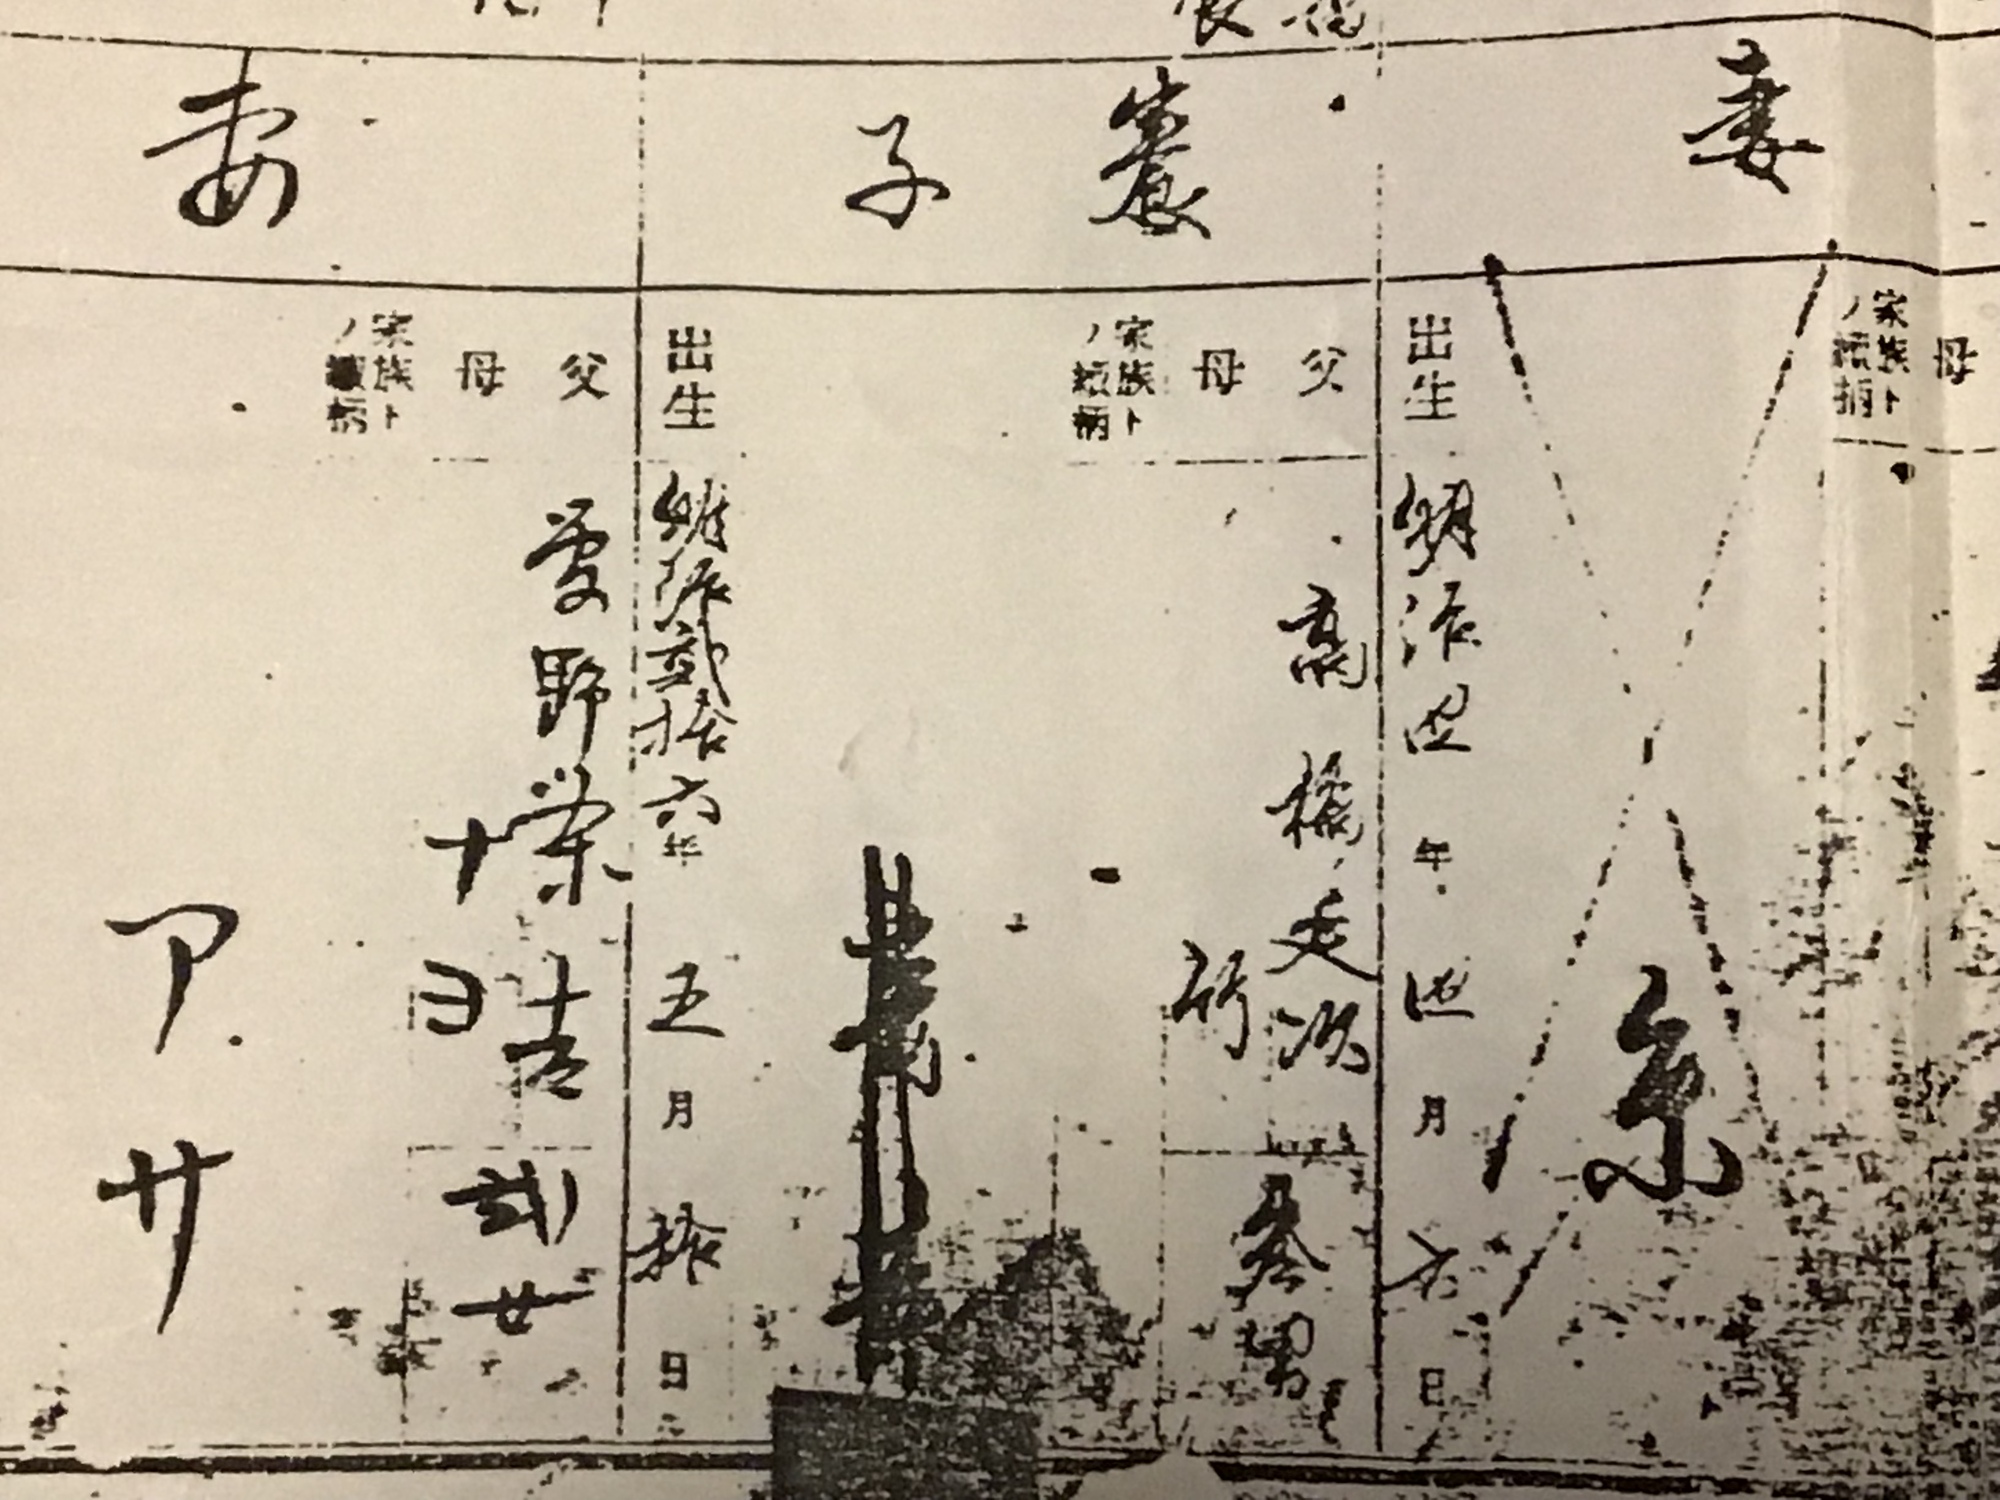 妻
母
家族ト
ノ續柄
糸
出生 明治四年四月六日
養子
父 高橋文次
母 竹
参男
家族ト
ノ續柄
出生 明治貮拾六年五月拾日
妻
父 菅野栄吉
母 ナヨ
貮女
家族ト
ノ續柄
アサ